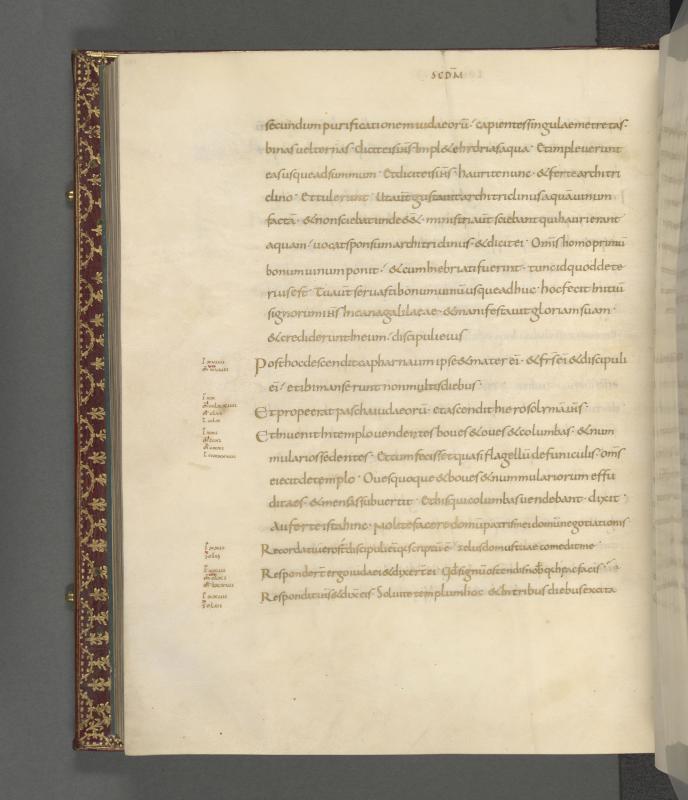 SCDM̄
secundum purificationem iudaeorū· capientes singulae metretas·
binas uel ternas· dicit eis ihs̄ implete hydrias aqua· Et impleuerunt
eas usque ad summum· Et dicit eis ihs̄ haurite nunc· & ferte architri
clino· Et tulerunt Ut aut̄ gustauit architriclinus aquā uinum
factā· & non sciebat unde ess&· ministri aut̄ sciebant qui haurierant
aquam· uocat sponsum architriclinus· & dicit ei· Omīs homo primū
bonum uinum ponit· & cum inebriati fuerint· tunc id quod dete
rius est· Tu aut̄ seruasti bonum uinū usque adhuc· hoc fecit initiū
signorum ihs̄ in cana galilaeae· & manifestauit gloriam suam·
& crediderunt in eum· discipuli eius
Post hoc descendit capharnaum ipse & mater eī· & fr̄s eī & discipuli
eī· et ibi manserunt non multis diebus·
Et prope erat pascha iudaeorū· et ascendit hierosolymā ih̄s·
Et inuenit in templo uendentes boues & oues & columbas· & num
mularios sedentes· Et cum fecisset quasi flagellū de funiculis· om̄s
eiecit de templo· Oues quoque & boues & nummulariorum effu
dit aes· & mensas subuertit· Et his qui columbas uendebant· dixit·
Auferte ista hinc· Nolite facere domū patris mei domū negotiationis
Recordati uero st̄ discipuli eī qs scriptū ē· zelus domus tuae comedit me
Respondert̄ ergo iudaei & dixert̄ ei· Qd̄ signū ostendis nob̄ q haec facis
Respondit ih̄s & dix̄ eis· Soluite templum hoc· & in tribus diebus excita